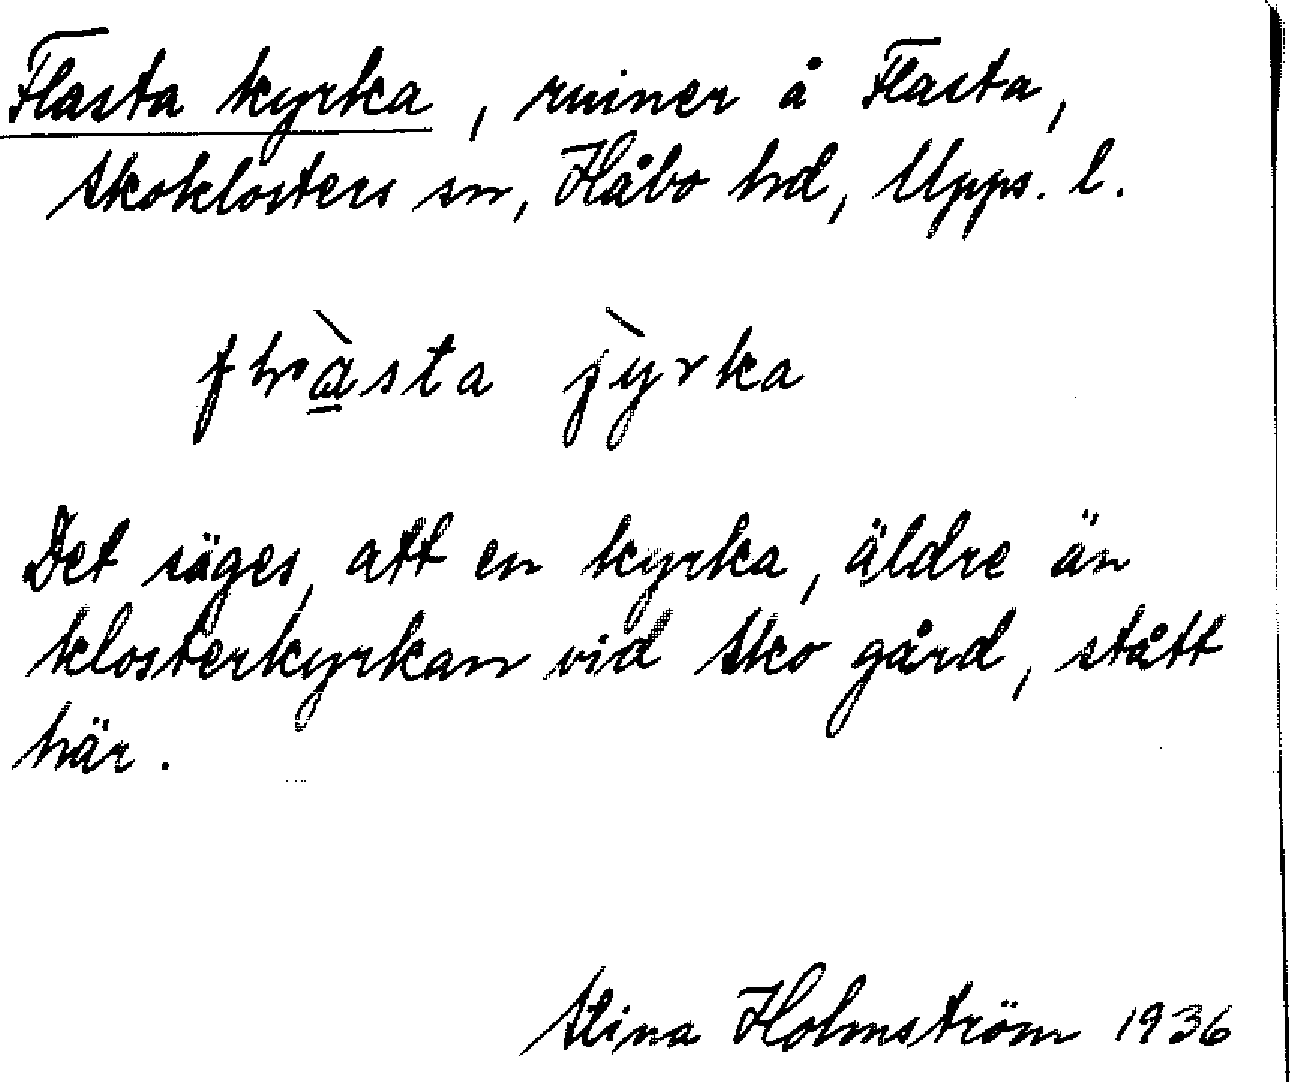 Flasta kyrka, ruiner å Flasta,
Skoklosters sn, Håbo hd, Upps. l.
Det säges, att en kyrka, äldre än
klosterkyrkan vid Sko gård, stått
här.
Stina Holmström 1936